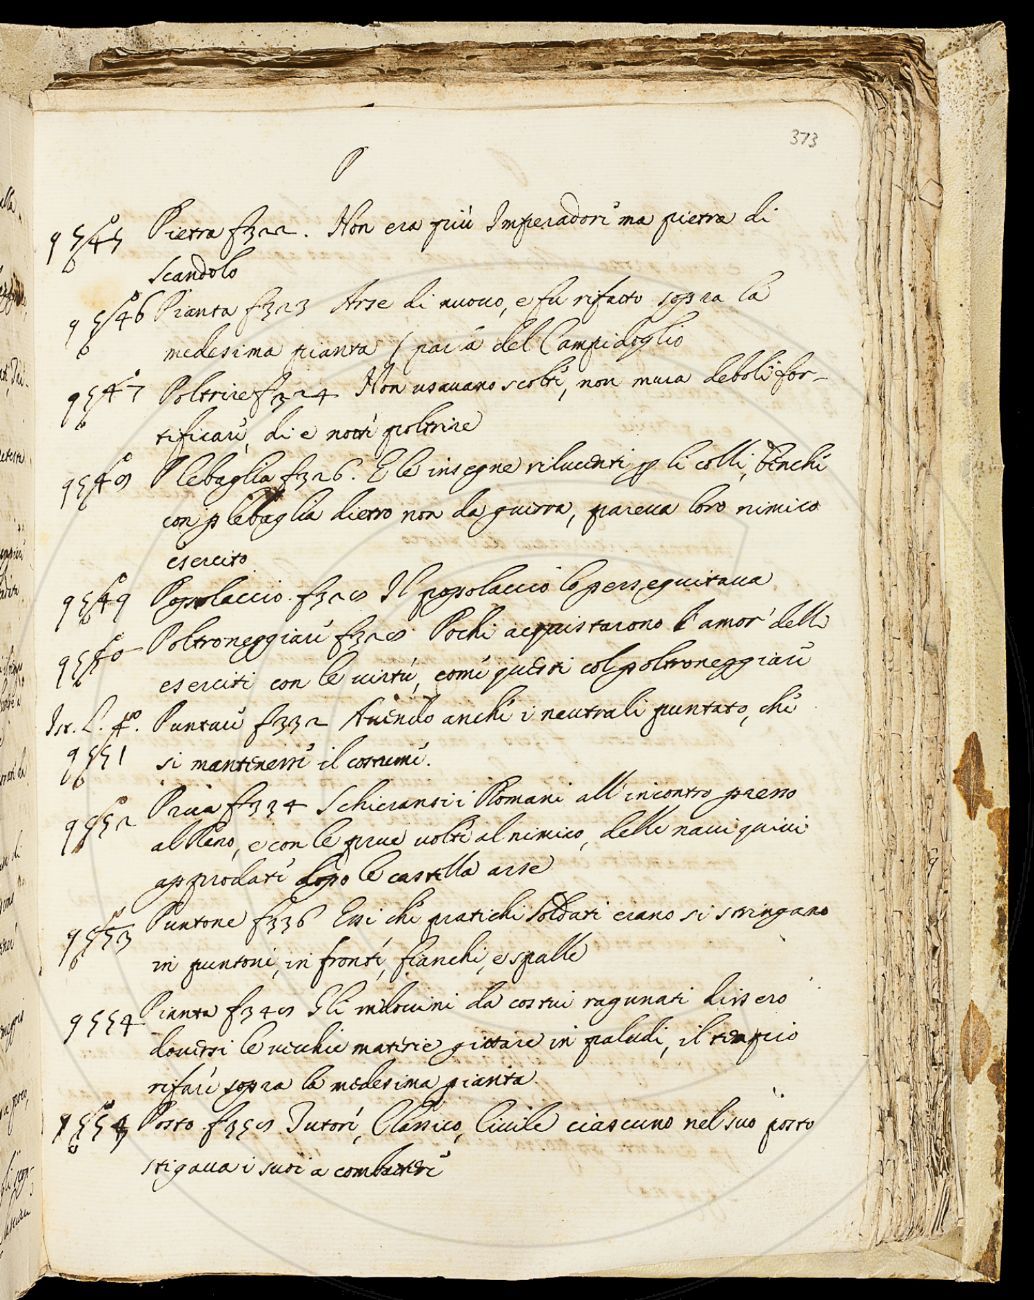 373
P
9545 Pietra f322. Non era più Imperadore ma pietra di
scandolo
9546 Pianta f323 Arse di nuovo, e fu rifatto sopra la
medesima pianta (parla del Campidoglio
9547 Poltrire f324 Non usavano scolte, non mura deboli for-
tificare, dì e notte poltrire
9548 Plebaglia f326. E le insegne rilucenti per li colli, benche
con plebaglia dietro non da guerra, pareva loro nimico
esercito
9549 Popolaccio f328 Il popolaccio lo perseguitava
9550 Poltroneggiare f328 Pochi acquistarono l'amor delli
eserciti con le virtù, come questi col poltroneggiare
Ist. L. 4o. Puntare f332 Avendo anche i neutrali puntato, che
9551 si mantenesse il costume.
9552 Prua f334 Schieransi i Romani all'incontro presso
al Reno, e con le prue volte al nimico, delle navi quivi
approdate dopo le castella arse
9553 Puntone f336 Essi che pratichi soldati erano si stringano
in puntoni, in fronte, fianchi, e spalle
9554 Pianta f348 Gli indovini da costui ragunati dissero
doversi le vecchie materie gittare in paludi, il tempio
rifare sopra la medesima pianta.
9554 Posto f358 Tutore, Classico, Civile ciascuno nel suo posto
stigava i suoi a combattere